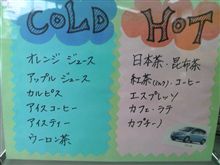 COLD
オレンジ ジュース
アップル ジュース
カルピス
アイスコーヒー
アイスティー
ウーロン茶
HOT
日本茶・昆布茶
紅茶(ミルク)・コーヒー
エスプレッソ
カフェ・ラテ
カプチーノ